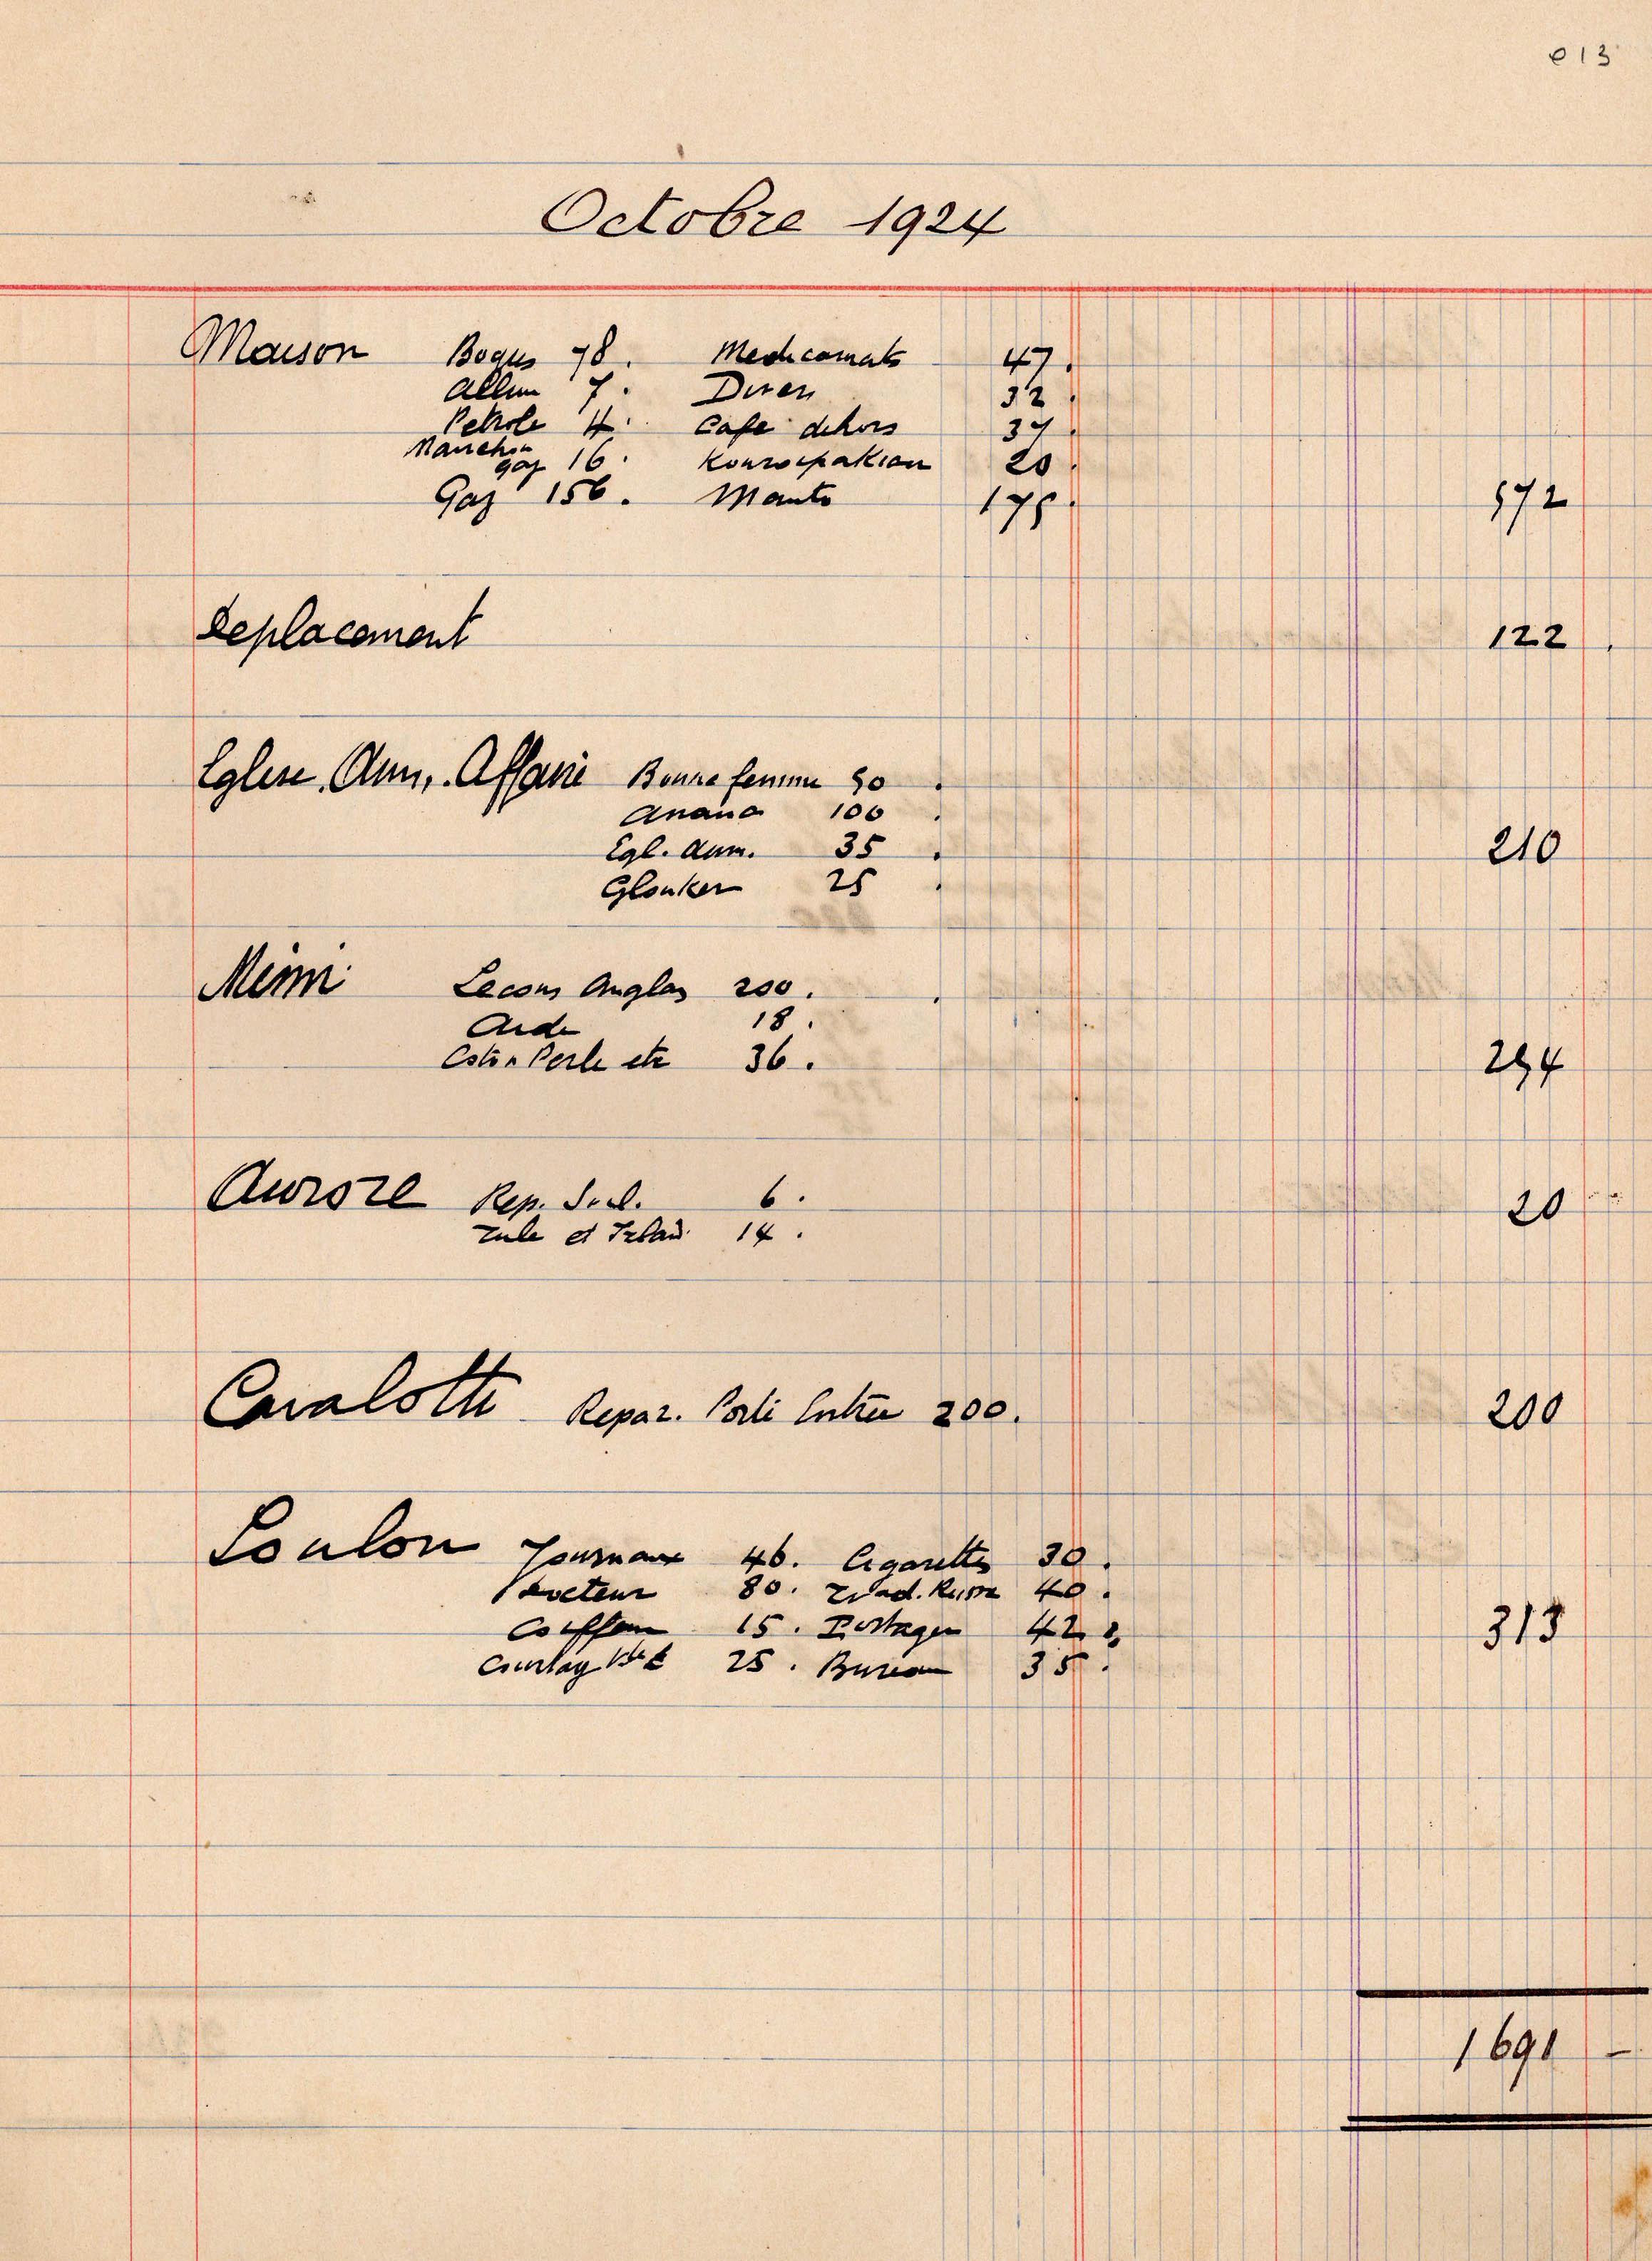 013
Octobre 1924
Maison Bogus 78. Medicamats 47.
Allum 7. Divers 32.
Petrole 4. Cafe dehors 37.
Manchon
gaz 16. Kouroupakian 20.
Gaz 156. Manto 175. 572
Deplacement 122.
Eglise, Aum,. Affaire Bonne femme 50.
Anana 100.
Egl. Aum. 35.
Glouker 25. 210
Mimi Lecons Anglas 200.
Aide 18.
Coton Perle etc 36. 254
Aurore Rep. Soul. 6. 20
Tule et Ruban 14.
Cavalotti Repar. Porte Entrée 200. 200
Loulou Journaux 46. Cigarettes 30.
Docteur 80. Trad. Russe 40.
Coiffeur 15. Postages 42. 313
25. Bureau 35.
1691 —